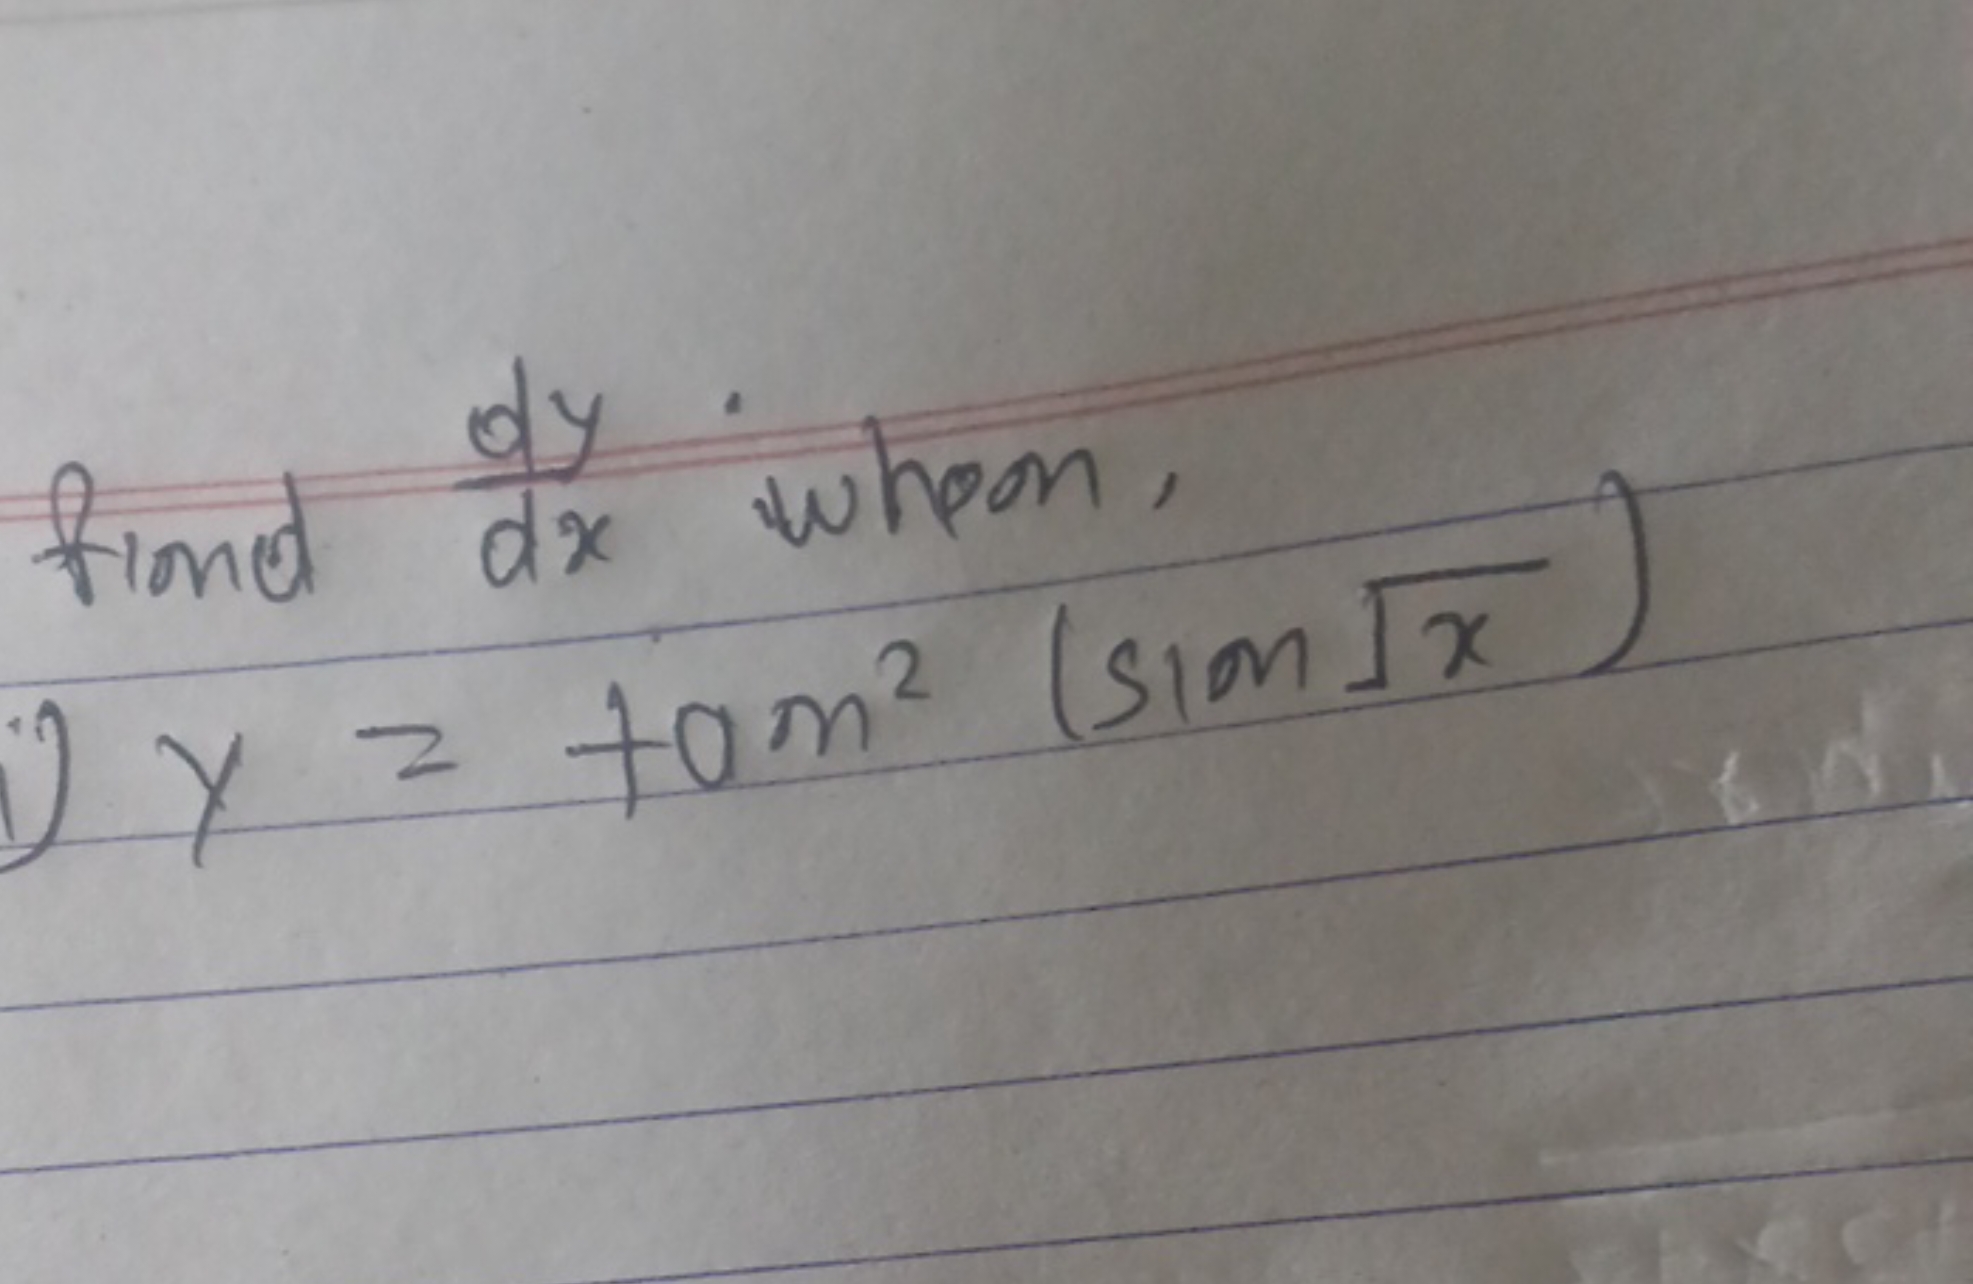 find dy/dx when,
i) y = tan² (sin √x)